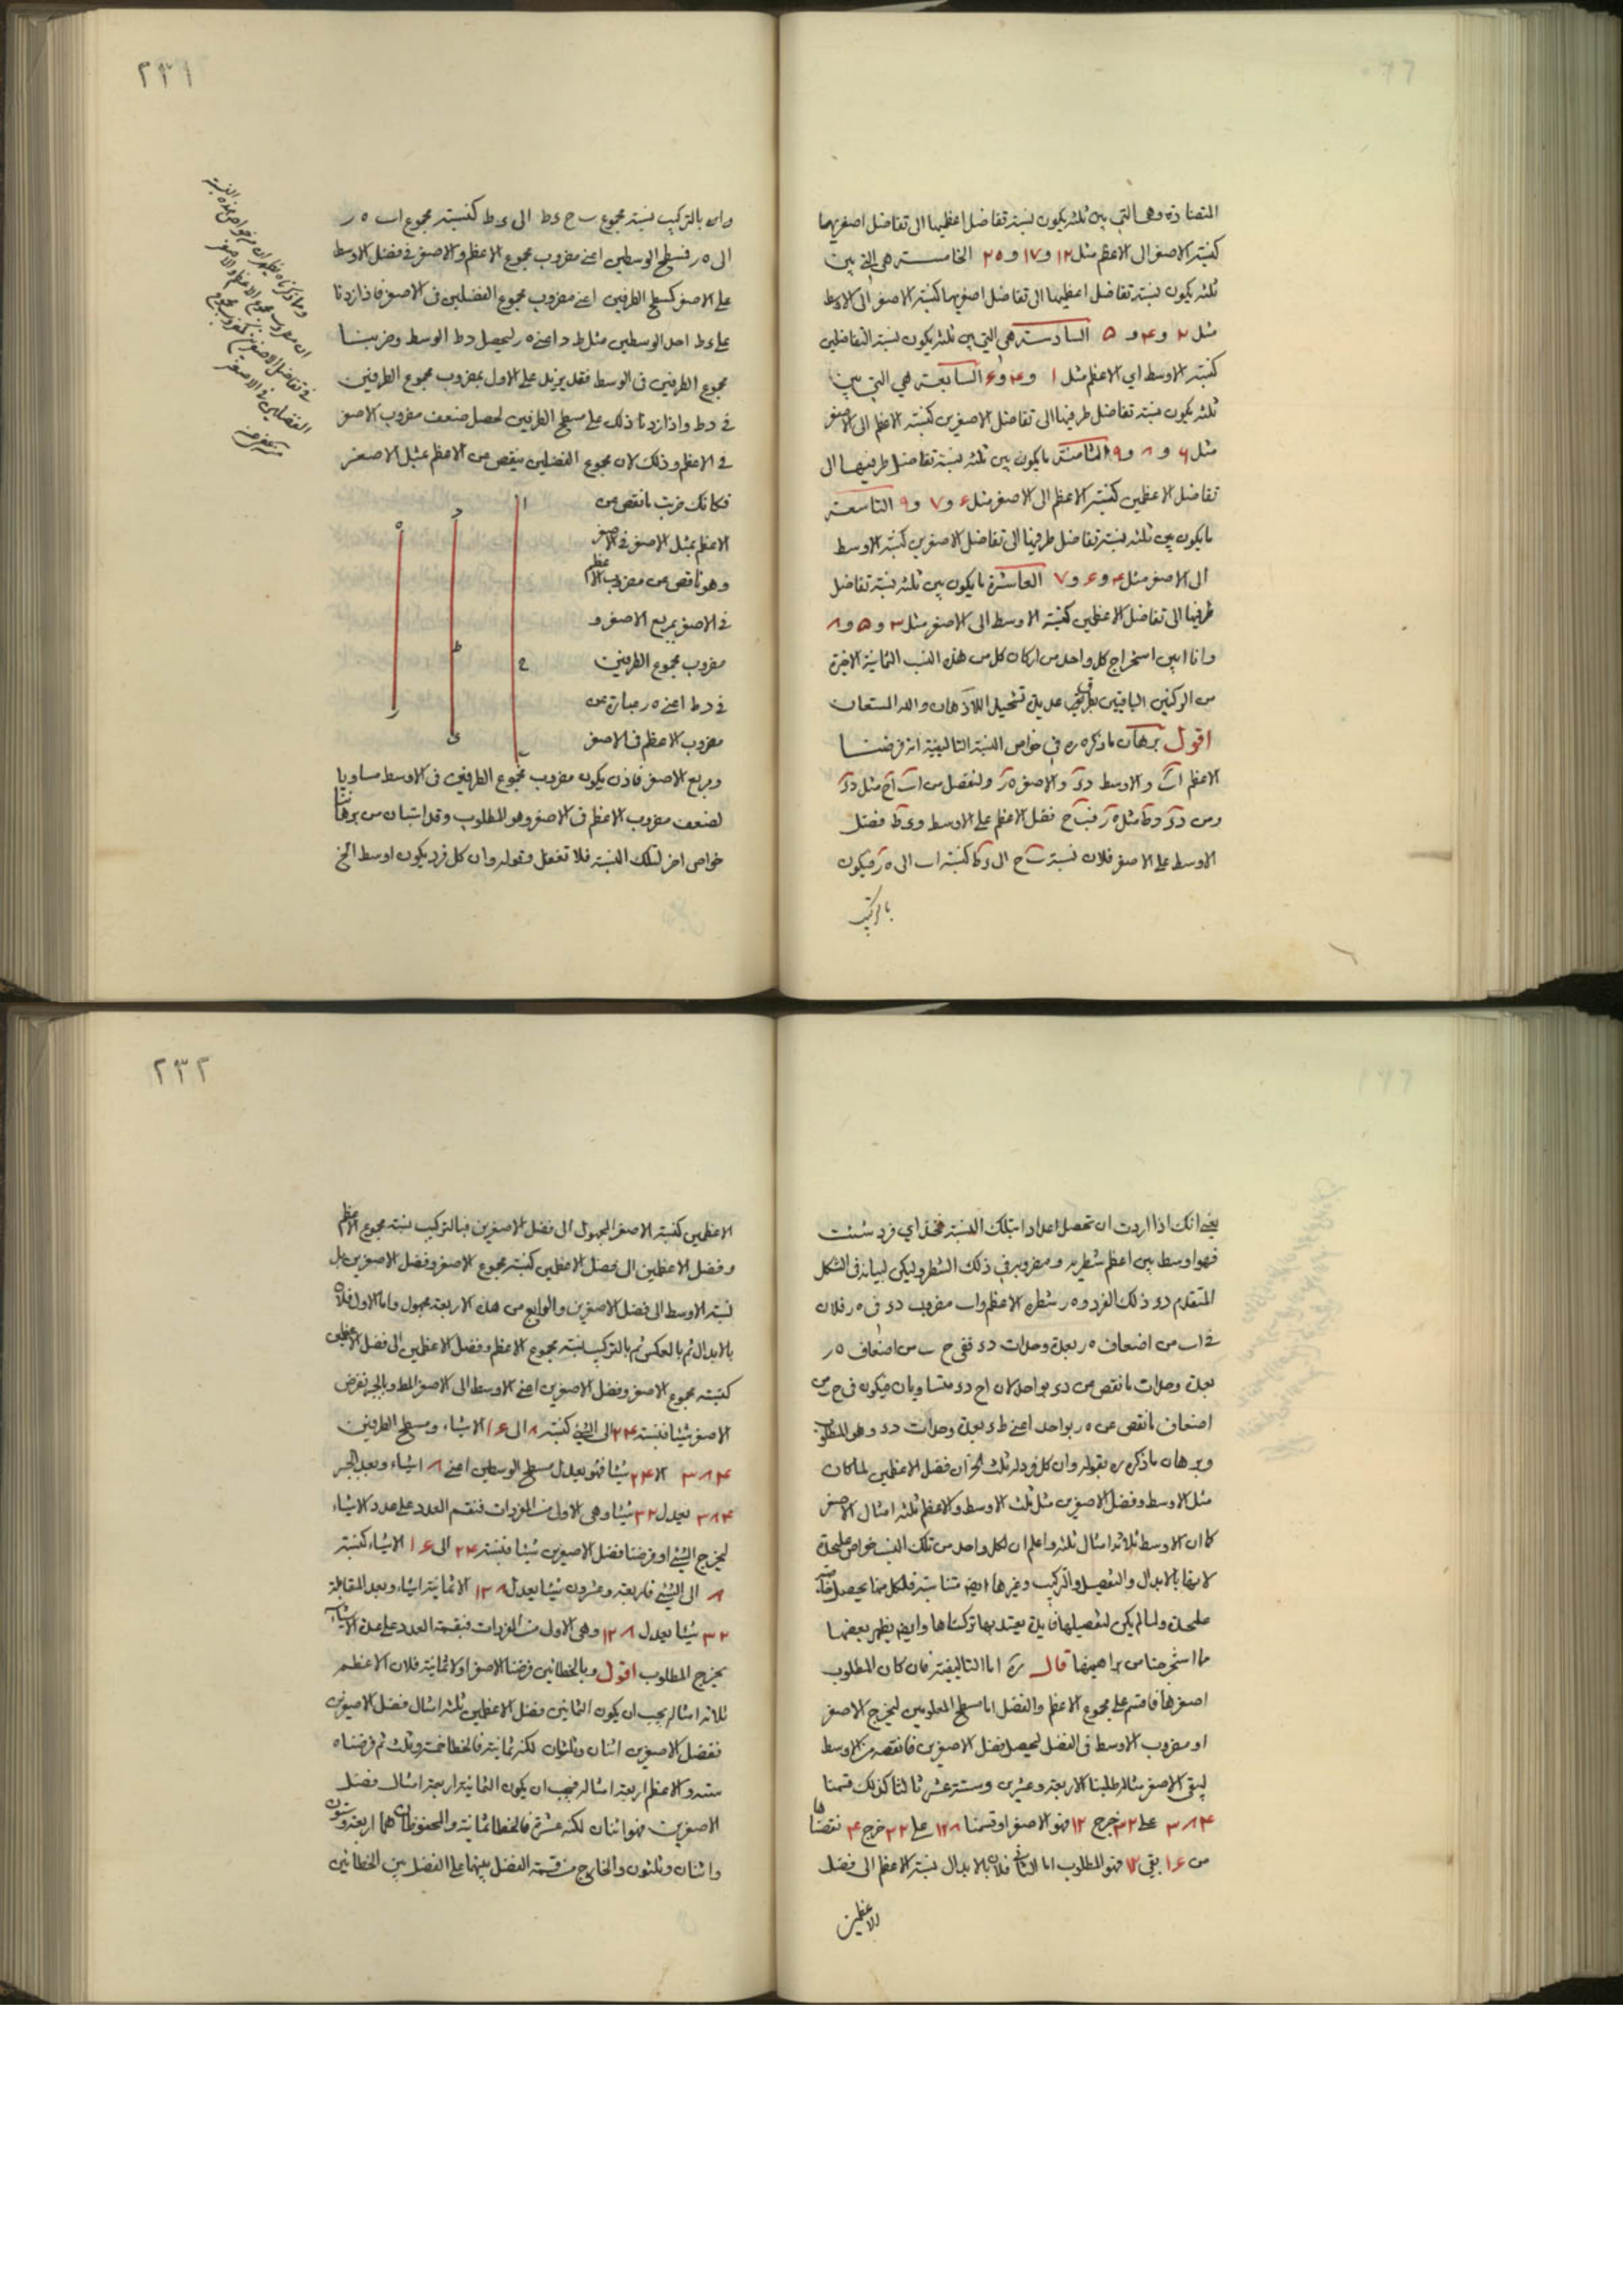 المتضادة وهي التي بين ثلثة يكون نسبة تفاضل اعظميها الى تفاضل اصغريهما
كنسبة الاصغر الى الاعظم مثل ١٢ و ١٧ و ٢٥ الخامسة هي التي بين
ثلثة يكون نسبة تفاضل اعظميها الى تفاضل اصغريها كنسبة الاصغر الى الاوسط
مثل ٢ و ٤ و ٥ السادسة هي التي بين ثلثة يكون نسبة التفاضلين
كنسبة الاوسط اي الاعظم مثل ١ و ٤ و ٦ السابعة هي التي بين
ثلثة يكون نسبة تفاضل طرفيها الى تفاضل الاصغرين كنسبة الاعظم الى الاصغر
مثل ٦ و ٨ و ٩ الثامنة ما يكون بين ثلثة نسبة تفاضل طرفيها الى
تفاضل الاعظمين كنسبة الاعظم الى الاصغر مثل ٦ و ٧ و ٩ التاسعة
ما يكون بين ثلثة نسبة تفاضل طرفيها الى تفاضل الاصغرين كنسبة الاوسط
الى الاصغر مثل ٤ و ٦ و ٧ العاشرة ما يكون بين ثلثة نسبة تفاضل
طرفيها الى تفاضل الاعظمين كنسبة الاوسط الى الاصغر مثل ٣ و ٥ و ٨
وانا ابين استخراج كل واحد من اركان كل من هذه النسب الثمانية الاخيرة
من الركنين الباقيين بطريق عديدة تشحيذا للاذهان والله المستعان
اقول برهان ما ذكره ره في خواص النسبة التاليفية انه فرضنا
الاعظم اب والاوسط دى والاصغر ه ر ولنفصل من اب اح مثل دى
ومن دى دط مثل ه ر فـ ب ح فضل الاعظم على الاوسط و ى ط فضل
الاوسط على الاصغر فلان نسبة ب ح الى ى ط كنسبة اب الى ه ر فيكون
بالتركيب
٢٣١
وابن بالتركيب نسبة مجموع ب ح ى ط الى ى ط كنسبة مجموع اب ه ر
الى ه ر فسطح الوسطين اعني مضروب مجموع الاعظم والاصغر في فضل الاوسط
على الاصغر كسطح الطرفين اعني مضروب مجموع الفضلين في الاصغر فاذا زدنا
على ى ط احد الوسطين مثل ط د اعني ه ر ليحصل د ط الوسط وضربنا
مجموع الطرفين في الوسط فقد يزيد على الاول بمضروب مجموع الطرفين
في د ط واذا زدنا ذلك على مسطح الطرفين لحصل ضعف مضروب الاصغر
في الاعظم وذلك لان مجموع الفضلين ينقص من الاعظم بمثل الاصغر
فكانك ضربت ما نقص من
الاعظم بمثل الاصغر في الاصغر
وهو ناقص من مضروب الاعظم
في الاصغر بمربع الاصغر و
مضروب مجموع الطرفين
في د ط اعني ه ر عبارة عن
مضروب الاعظم في الاصغر
ومربع الاصغر فاذن يكون مضروب مجموع الطرفين في الاوسط مساويا
لضعف مضروب الاعظم في الاصغر وهو المطلوب وقد استبان من برهاننا
خواص اخر لتلك النسبة فلا تغفل وقوله وان كل فرد يكون اوسط الخ
ا د ه ط ح ر ى ب
٢٣٢
يعني انك اذا اردت ان تحصل اعدادا بتلك النسبة فخذ اي فرد شئت
فهو اوسط بين اعظم شطريه ومضروبه في ذلك الشطر وليكن لبيانه في الشكل
المتقدم دى ذلك الفرد و ه ر شطره الاعظم واب مضروب دى في ه ر فلان
في اب من اضعاف ه ر بعدة وحدات دى ففي ح ب من اضعاف ه ر
بعدة وحدات ما نقص من دى بواحد لان اح دى متساويان فيكون في ح ب من
اضعاف ما نقص عن ه ر بواحد اعني ط ى بعدة وحدات دى وهو المطلوب
وبرهان ما ذكره ره بقوله وان كل فرد له ثلث الخ ان فضل الاعظمين لما كان
مثل الاوسط وفضل الاصغرين مثل ثلث الاوسط والاعظم ثلثة امثال الاصغر
كما ان الاوسط ثلاثة امثال ثلثه واعلم ان لكل واحد من تلك النسب خواص عليحدة
لانها بالابدال والتفصيل والتركيب وغيرها ايضا متناسبة فلكل منها يحصل خاصة
عليحدة ولما لم يكن لتفصيلها فايدة يعتد بها تركناها وايضا يظهر بعضها
مما استخرجنا من براهينها قال ره اما التاليفية فان كان المطلوب
اصغرها فاقسم على مجموع الاعظم والفضل اما مسطح المعلومين ليخرج الاصغر
او مضروب الاوسط في الفضل ليحصل فضل الاصغرين فانقصه من الاوسط
ليبقى الاصغر مثاله طلبنا الاربعة وعشرين وستة عشر ثالثا كذلك قسمنا
٣٨٤ على ٣٢ خرج ١٢ فهو الاصغر او قسمنا ١٢٨ على ٣٢ خرج ٤ نقصناها
من ١٦ بقي ١٢ فهو المطلوب اما الثاني فلان بالابدال نسبة الاعظم الى فضل
الاعظمين
الاعظمين كنسبة الاصغر المجهول الى فضل الاصغرين فبالتركيب نسبة مجموع الاعظم
وفضل الاعظمين الى فضل الاعظمين كنسبة مجموع الاصغر وفضل الاصغرين بل
نسبة الاوسط الى فضل الاصغرين والرابع من هذه الاربعة مجهول واما الاول فلان
بالابدال ثم بالعكس ثم بالتركيب نسبة مجموع الاعظم وفضل الاعظمين الى فضل الاعظمين
كنسبة مجموع الاصغر وفضل الاصغرين اعني الاوسط الى الاصغر المط وبالجبر نفرض
الاصغر شيئا فنسبة ٢٤ الى الشئ كنسبة ٨ الى ١٦ الا شيئا ومسطح الطرفين
٣٨٤ الا ٢٤ شيئا فهو يعدل مسطح الوسطين اعني ٨ اشياء وبعد الجبر
٣٨٤ يعدل ٣٢ شيئا وهي الاولى من المفردات فنقسم العدد على عدد الاشياء
ليخرج الشئ او فرضنا فضل الاصغرين شيئا فنسبة ٢٤ الى ١٦ الا شيئا كنسبة
٨ الى الشئ فاربعة وعشرون شيئا يعدل ١٢٨ الا ثمانية اشياء وبعد المقابلة
٣٢ شيئا يعدل ١٢٨ وهي الاولى من المفردات فبقسمة العدد على عدة الاشياء
يخرج المطلوب اقول وبالخطائين فرضنا الاصغر اولا ثمانية فلان الاعظم
ثلاثة امثاله يجب ان يكون الثمانين فضل الاعظمين ثلثة امثال فضل الاصغرين
ففضل الاصغرين اثنان وثلثان لكنه ثمانية فالخطا خمسة وثلث ثم فرضناه
ستة والاعظم اربعة امثاله فيجب ان يكون الثمانية اربعة امثال فضل
الاصغرين فهو اثنان لكنه عشرة فالخطا ثمانية والمحفوظان هما اربعة وستون
واثنان وثلثون والخارج من قسمة الفضل بينهما على الفضل بين الخطائين